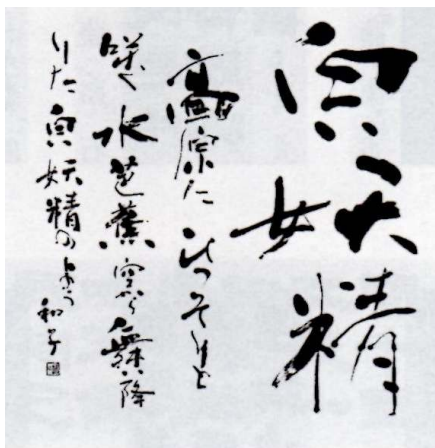 白い妖精
高原にひっそりと
咲く水芭蕉空から舞降
りた白い妖精のよう
和子